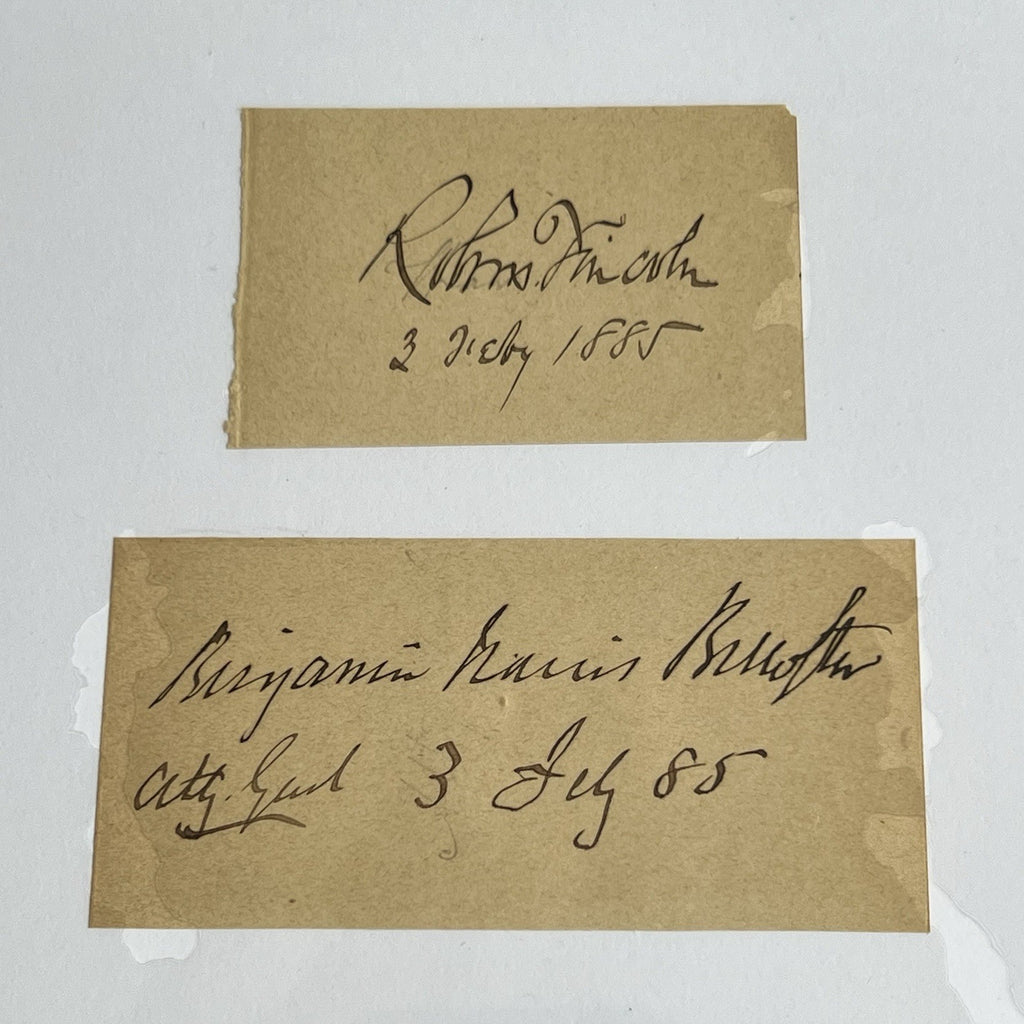 Robt. T. Lincoln
3 Feby 1885
Benjamin Harris Brewster
Atty. Genl 3 Feby 85